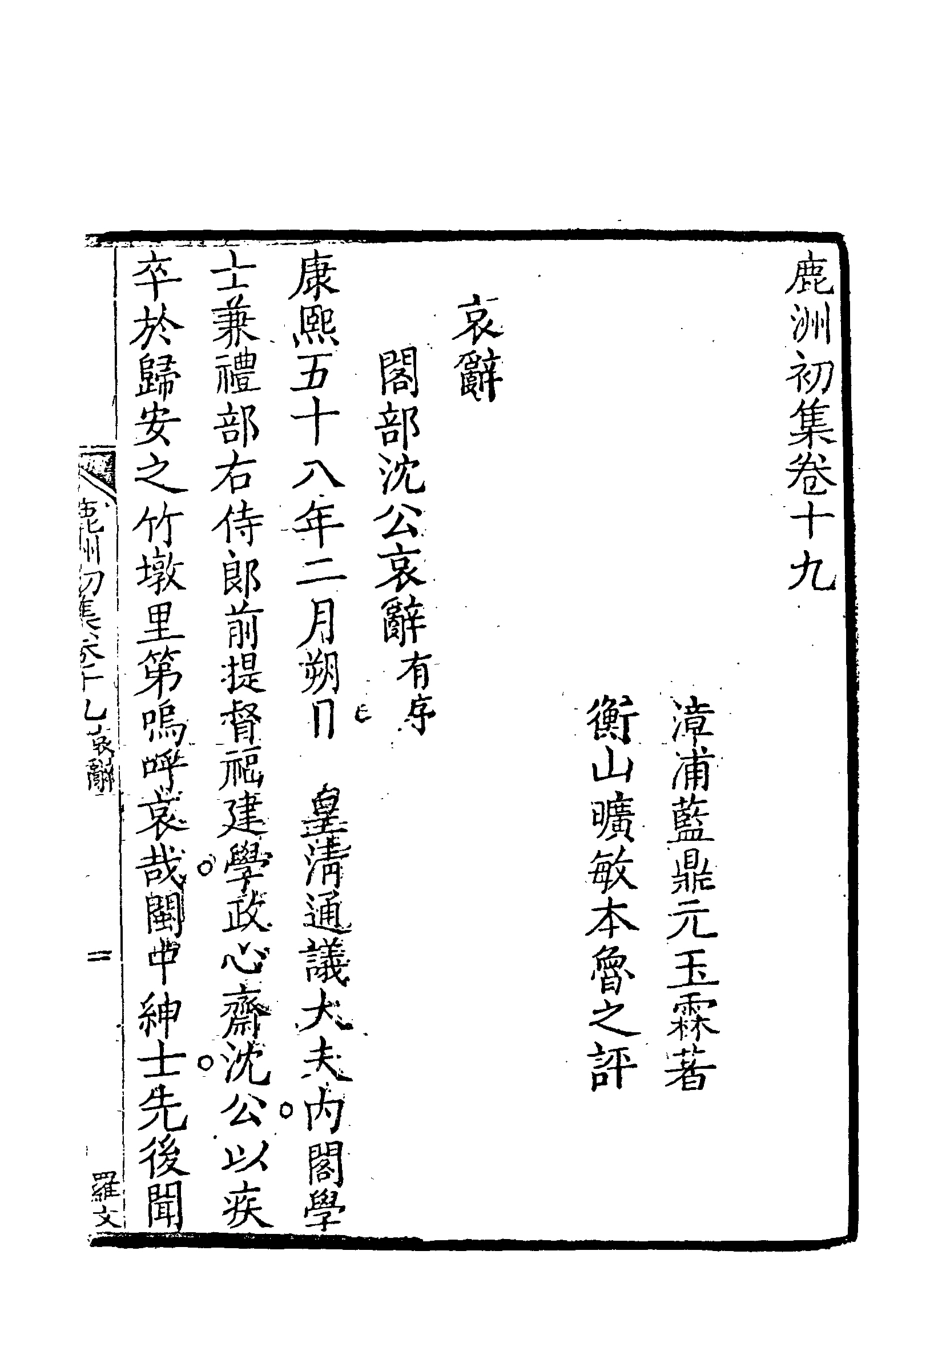 鹿洲初集卷十九
漳浦藍鼎元玉霖著
衡山曠敏本魯之評
哀辭
閣部沈公哀辭有序
康熙五十八年二月朔日　皇清通議大夫內閣學
士兼禮部右侍郎前提督福建學政心齋沈公以疾
卒於歸安之竹墩里第嗚呼哀哉閩中紳士先後聞
鹿洲初集卷十九 哀辭 一 羅文